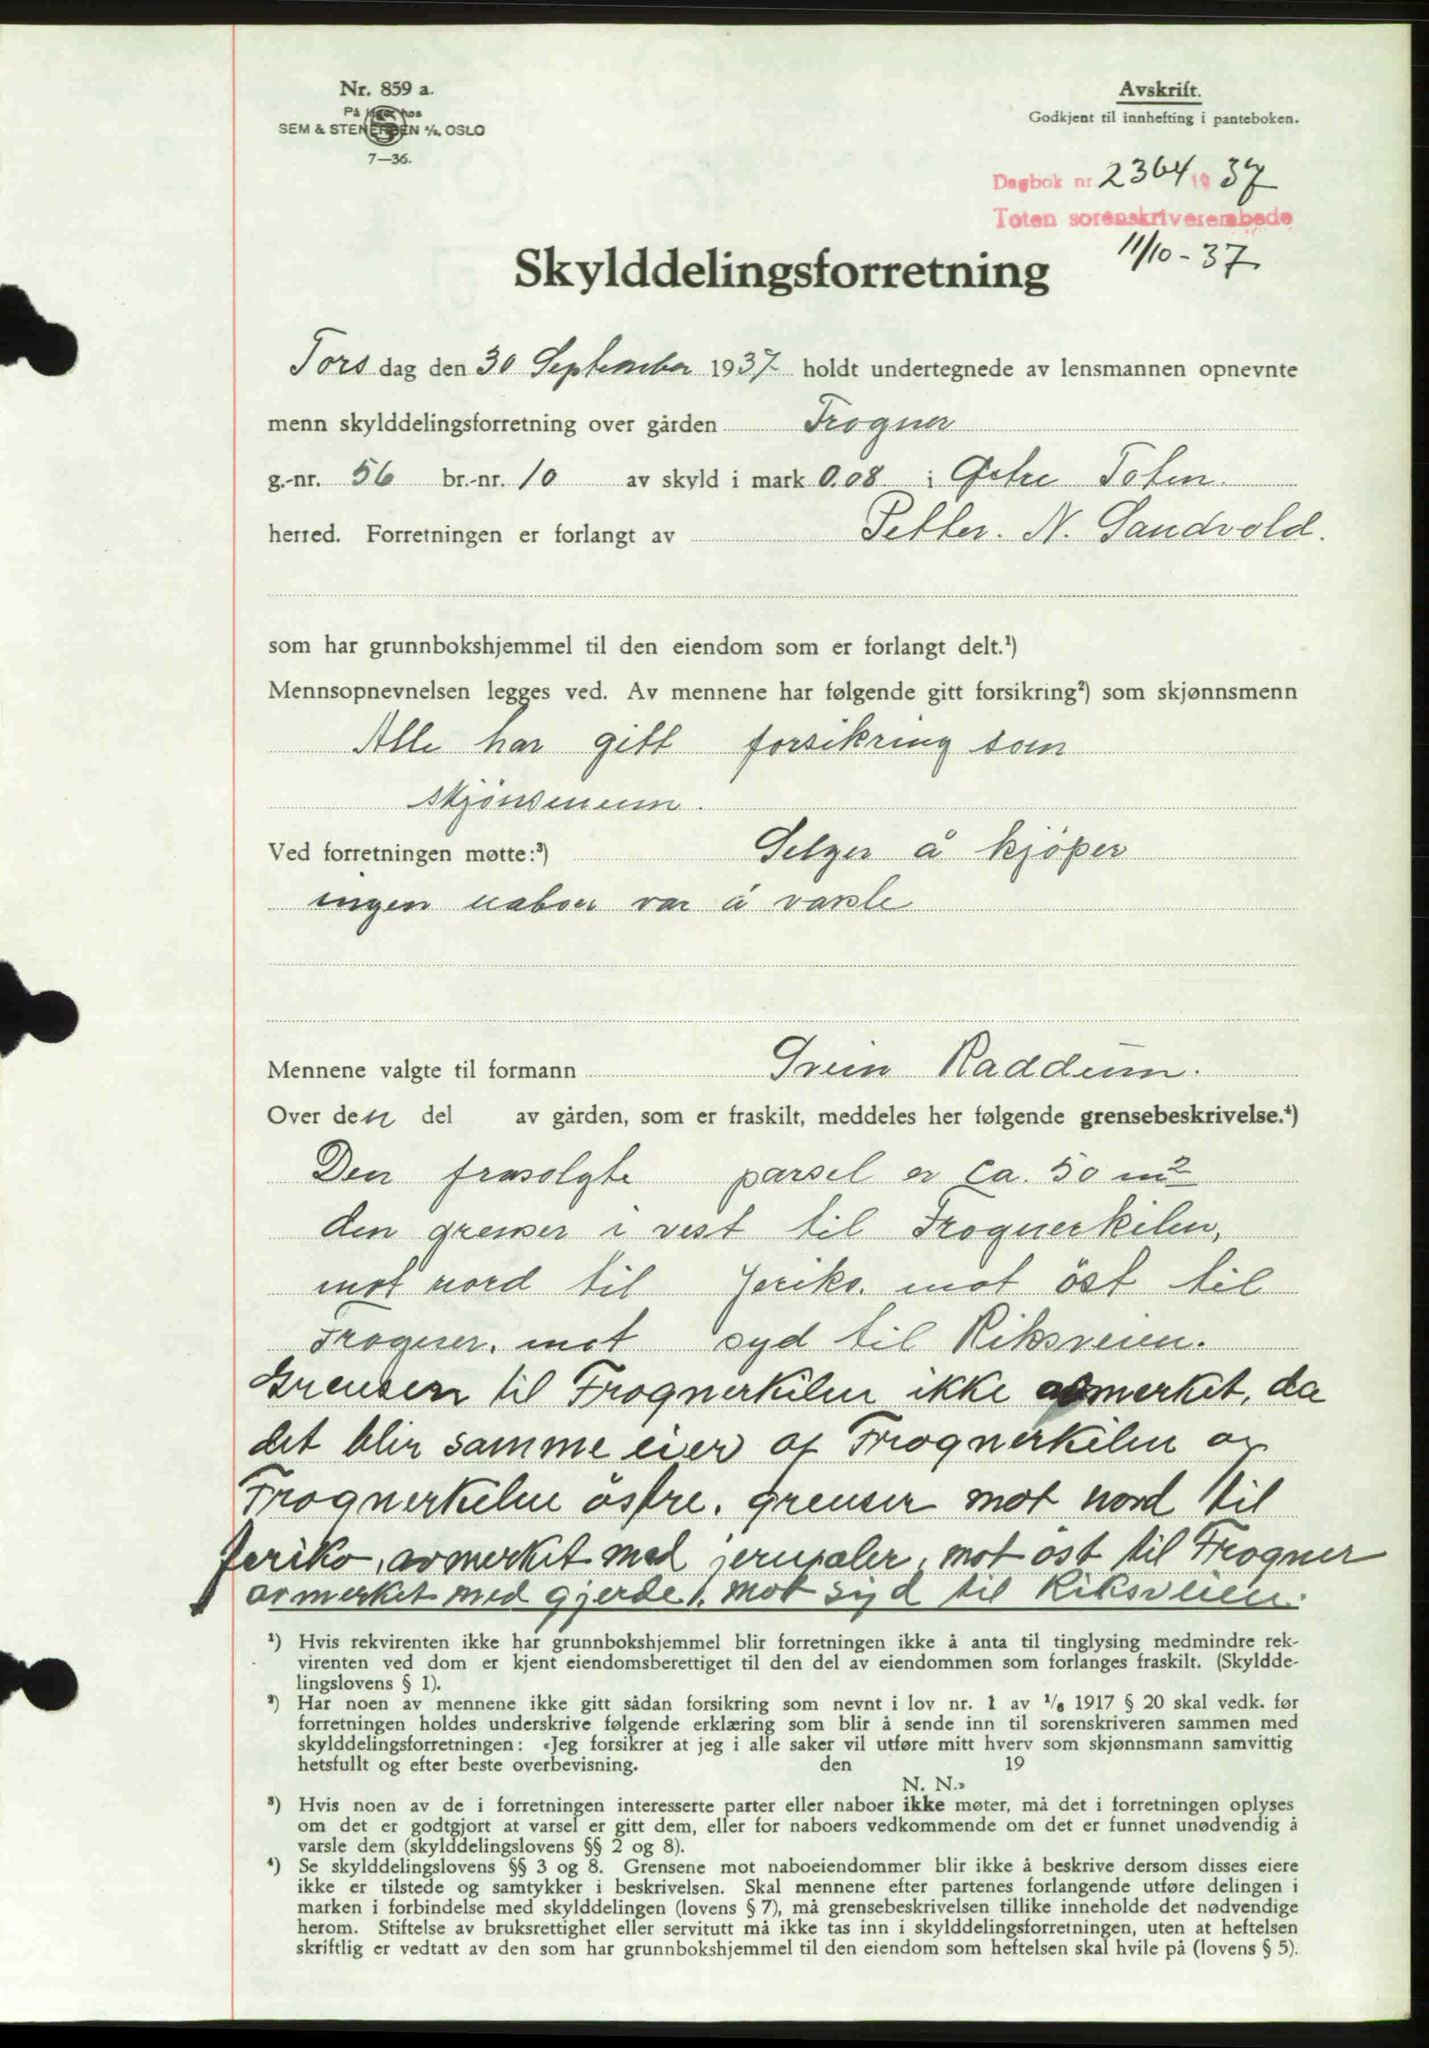 Nr. 859 a.
På lager hos
SEM & STENERSEN A/S. OSLO
7—36.
Avskrift.
Godkjent til innhefting i panteboken.
Dagbok nr. 2364 19 37
Toten sorenskriverembede
11/10 - 37
Skylddelingsforretning
Torsdag den 30 September 1937 holdt undertegnede av lensmannen opnevnte
menn skylddelingsforretning over gården Frogner
g.-nr. 56 br.-nr. 10 av skyld i mark 0.08 i Østre Toten.
herred. Forretningen er forlangt av Petter. N. Sandvold.
som har grunnbokshjemmel til den eiendom som er forlangt delt.¹)
Mennsopnevnelsen legges ved. Av mennene har følgende gitt forsikring²) som skjønnsmenn
Alle har gitt forsikring som
skjönsmenn.
Ved forretningen møtte:³) Selger å kjöper
ingen naboer var å varsle
Mennene valgte til formann Svein Raddum.
Over den del av gården, som er fraskilt, meddeles her følgende grensebeskrivelse.⁴)
Den frasolgte parsel er ca. 50 m²
den grenser i vest til Frognerkilen,
mot nord til Jeriko. mot öst til
Frogner. mot syd til Riksveien.
Grensen til Frognerkilen ikke avmerket, da
det blir samme eier af Frognerkilen og
Frognerkilen östre. grenser mot nord til
Jeriko, avmerket med jernpæler, mot öst til Frogner
avmerket med gjerde, mot syd til Riksveien.
¹) Hvis rekvirenten ikke har grunnbokshjemmel blir forretningen ikke å anta til tinglysing medmindre rek-
virenten ved dom er kjent eiendomsberettiget til den del av eiendommen som forlanges fraskilt. (Skyldde-
lingslovens § 1).
²) Har noen av mennene ikke gitt sådan forsikring som nevnt i lov nr. 1 av ¹/₆ 1917 § 20 skal vedk. før
forretningen holdes underskrive følgende erklæring som blir å sende inn til sorenskriveren sammen med
skylddelingsforretningen: «Jeg forsikrer at jeg i alle saker vil utføre mitt hverv som skjønnsmann samvittig
hetsfullt og efter beste overbevisning. den 19
N. N.»
³) Hvis noen av de i forretningen interesserte parter eller naboer ikke møter, må det i forretningen oplyses
om det er godtgjort at varsel er gitt dem, eller for naboers vedkommende om det er funnet unødvendig å
varsle dem (skylddelingslovens §§ 2 og 8).
⁴) Se skylddelingslovens §§ 3 og 8. Grensene mot naboeiendommer blir ikke å beskrive dersom disses eiere
ikke er tilstede og samtykker i beskrivelsen. Skal mennene efter partenes forlangende utføre delingen i
marken i forbindelse med skylddelingen (lovens § 7), må grensebeskrivelsen tillike inneholde det nødvendige
herom. Stiftelse av bruksrettighet eller servitutt må ikke tas inn i skylddelingsforretningen, uten at heftelsen
skriftlig er vedtatt av den som har grunnbokshjemmel til den eiendom som heftelsen skal hvile på (lovens § 5).